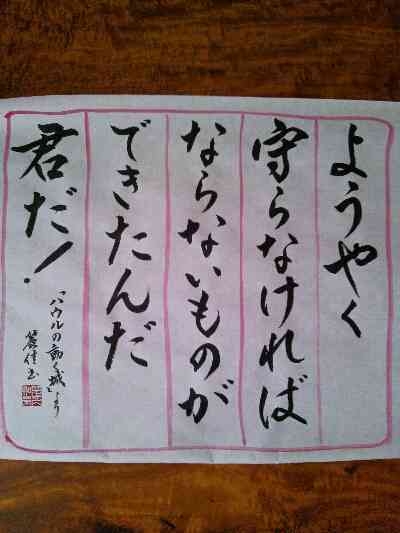 ようやく
守らなければ
ならないものが
できたんだ
君だ!
「ハウルの動く城」より